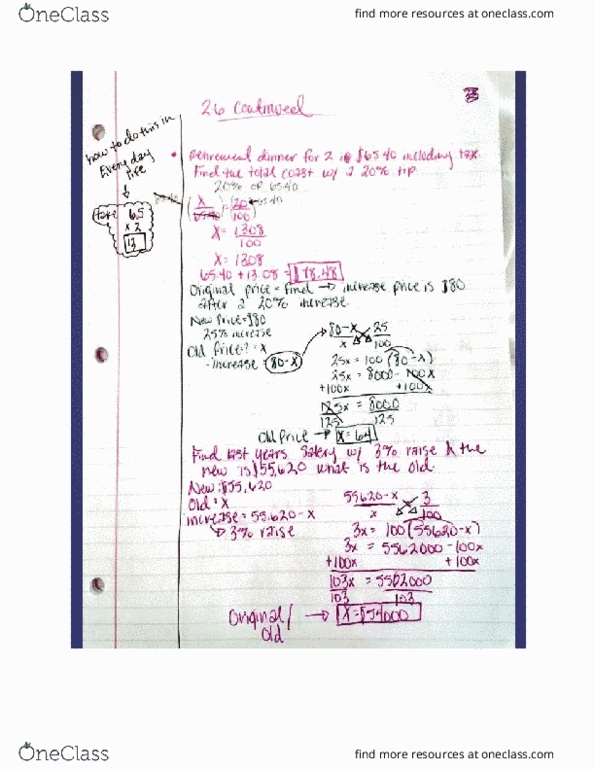 OneClass
find more resources at oneclass.com
2.6 Continued
how to do this in
Every day
life
take 65
x 2
13
• Retirement dinner for 2 is $65.40 including tax.
Find the total coast w/ a 20% tip
20% of 65.40
(x/65.40) = (20/100) 65.40
x = 1308/100
x = 1308
65.40 + 13.08 = $78.48
Original price = Find → increase price is $80
after a 20% increase.
New Price = $80
25% increase
Old Price? = x
- increase = 80-x
80-x/x 25/100
25x = 100(80-x)
25x = 8000 - 100x
+100x +100x
125x = 8000
125 125
Old Price → x = 64
Find last years salary w/ 3% raise & the
new is $55,620 what is the old.
New: $55,620
Old = x
increase = 55,620 - x
↳ 3% raise
55620-x/x 3/100
3x = 100(55620-x)
3x = 5562000 - 100x
+100x +100x
103x = 5562000
103 103
Original/
Old → x = $54000
OneClass
find more resources at oneclass.com